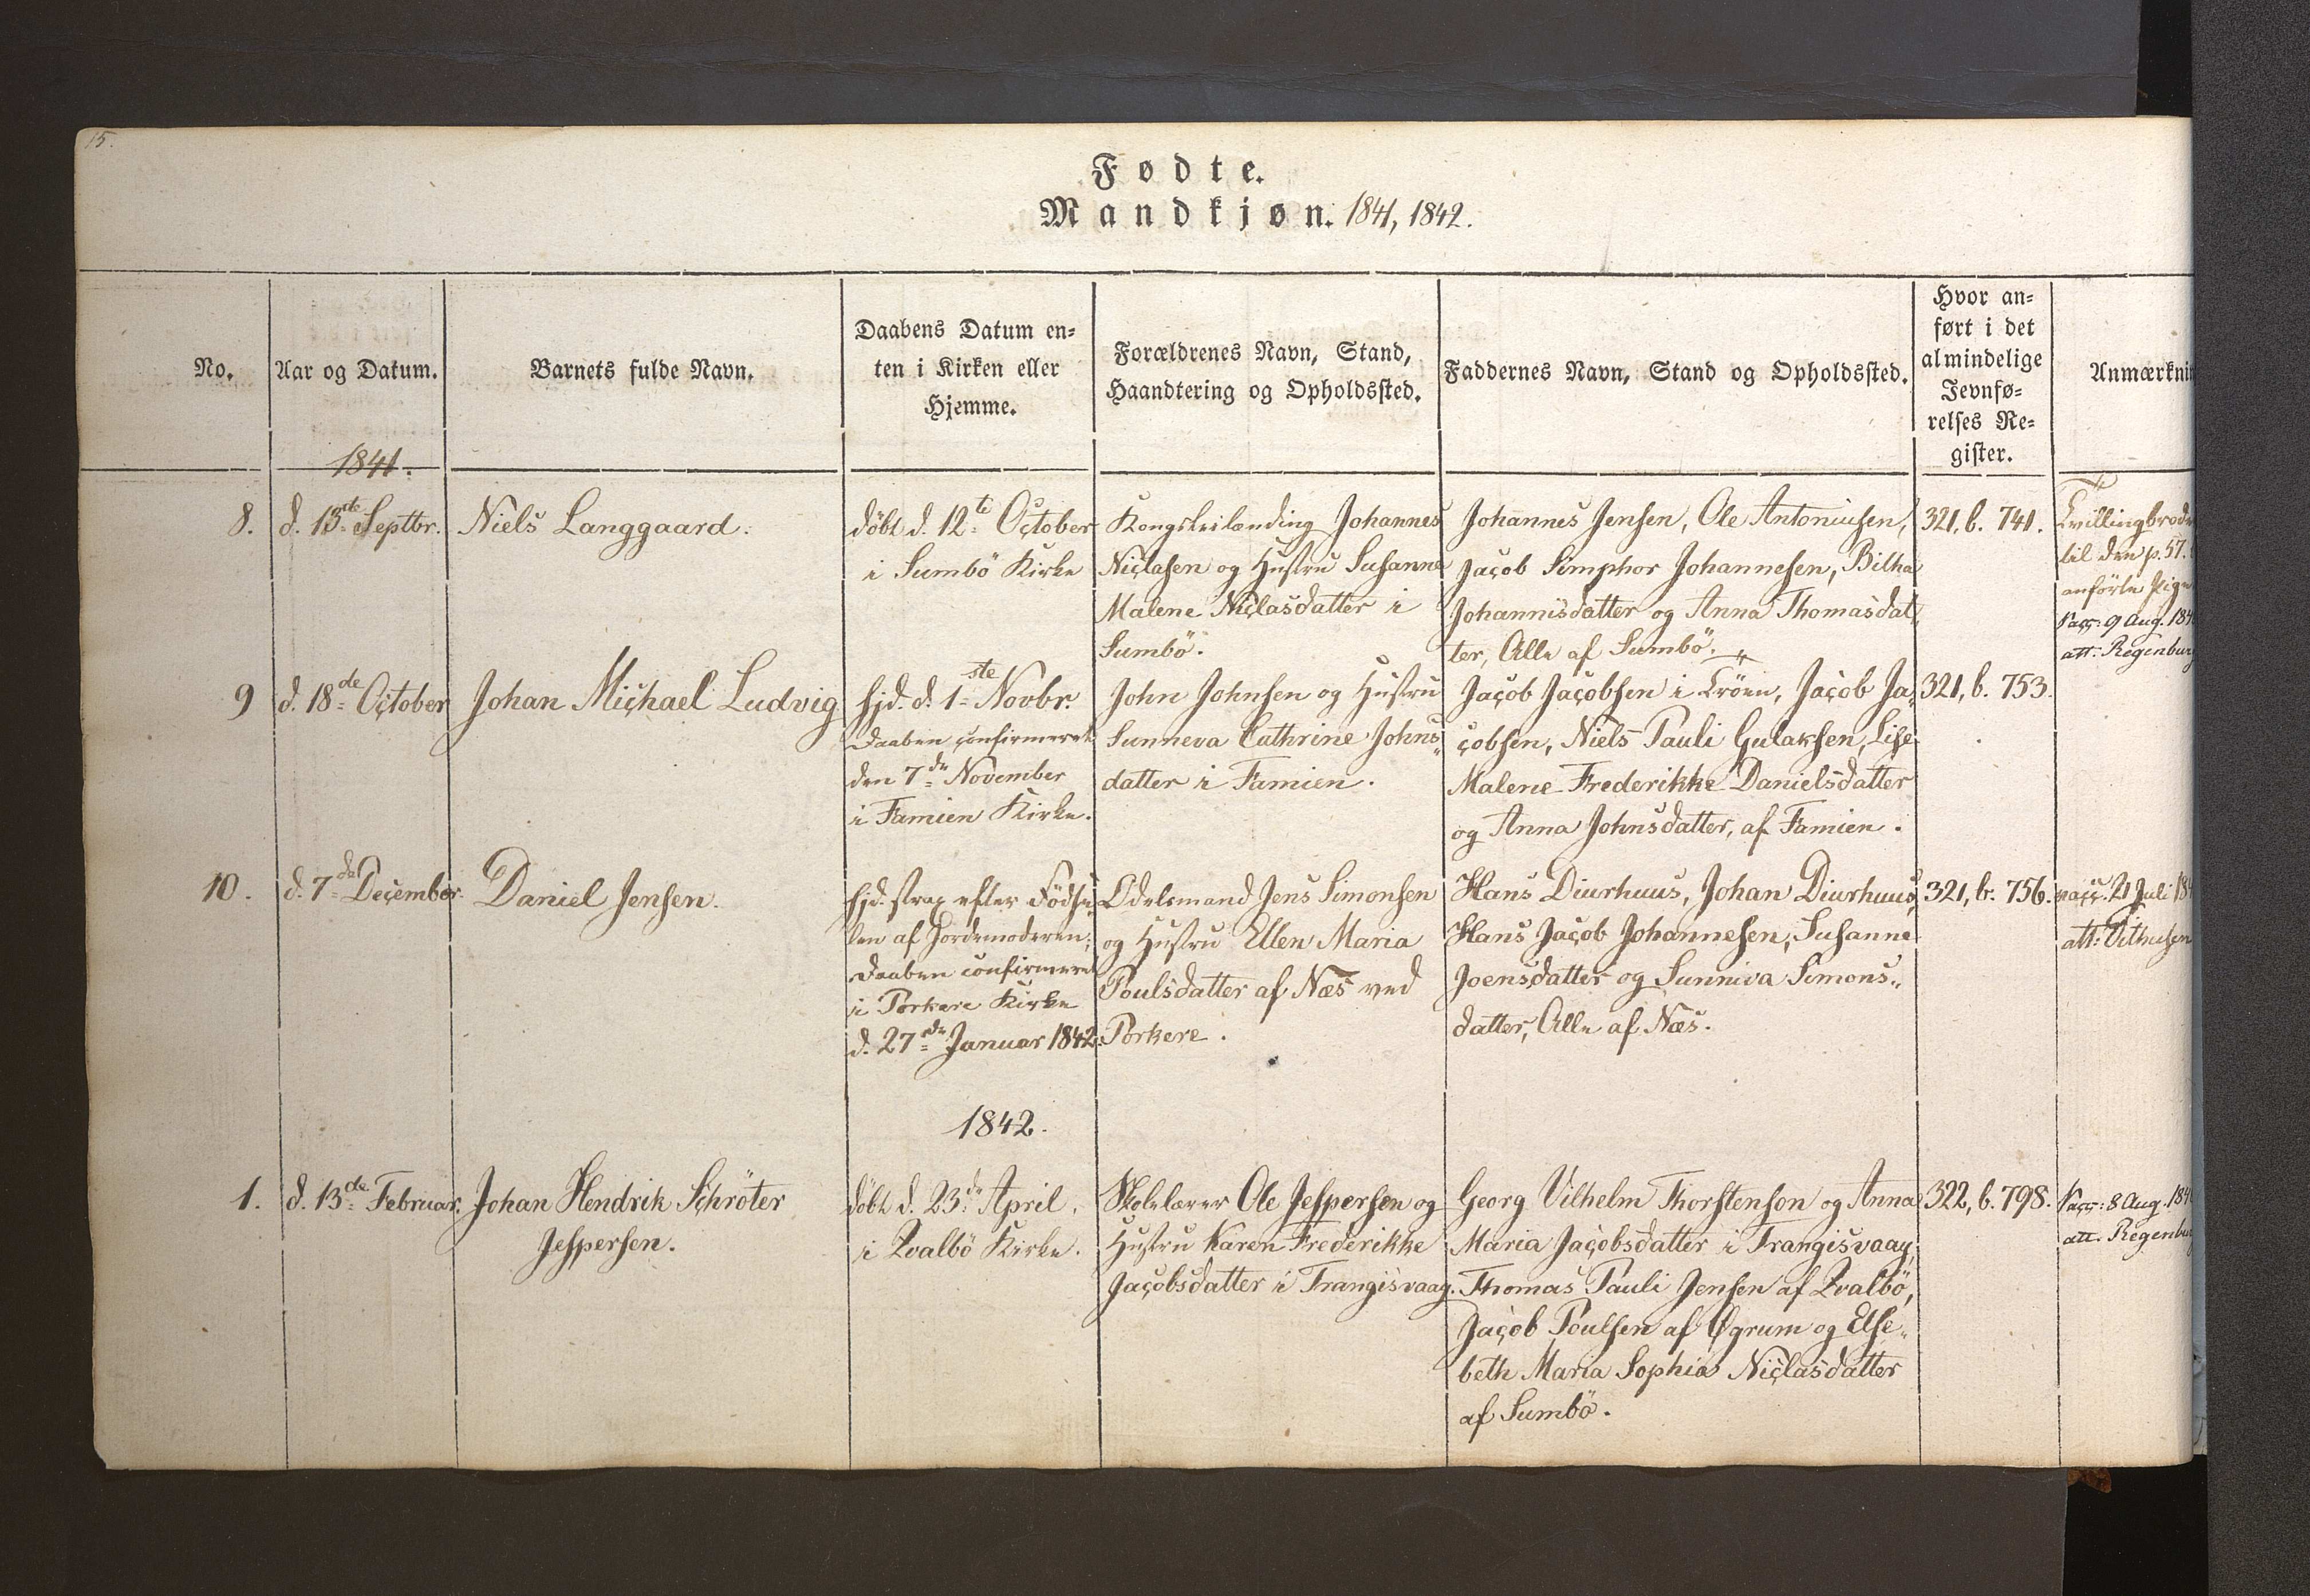 15.
Fødte.
Mandkjøn. 1841, 1842.
No.
Aar og Datum.
Barnets fulde Navn.
Daabens Datum en=
ten i Kirken eller
Hjemme.
Forældrenes Navn, Stand,
Haandtering og Opholdssted.
Faddernes Navn, Stand og Opholdssted.
Hvor an=
ført i det
almindelige
Jevnfø=
relses Re=
gister.
Anmærknin
1841.
8.
d. 13de Septbr.
Niels Langgaard.
döbt d. 12te October
i Sumbö Kirke
Kongsleilænding Johannes
Niclasen og Hustru Susanne
Malene Niclasdatter i
Sumbö.
Johannes Jensen, Ole Antoniusen,
Jacob Simphor Johannesen, Bilha
Johannisdatter og Anna Thomasdat,
ter, Alle af Sumbö.
321, b. 741.
Tvillingbrod
til den p. 57.
anförte Pige
Vacc: 9 Aug. 184
att: Regenburg
9
d. 18de October
Johan Michael Ludvig
hjd. d. 1ste Novbr.
Daaben confirmeret
den 7de November
i Famien Kirke.
John Johnsen og Hustru
Sunneva Cathrine Johns„
datter i Famien.
Jacob Jacobsen i Tröen, Jacob Ja„
cobsen, Niels Pauli Gulaksen, Lise
Malene Frederikke Danielsdatter
og Anna Johnsdatter, af Famien.
321, b. 753.
10.
d. 7de December.
Daniel Jensen.
hjd. strax efter Födse„
len af Jordemoderen;
Daaben confirmeret
i Porkere Kirke
d. 27de Januar 1842.
Odelsmand Jens Simonsen
og Hustru Ellen Maria
Poulsdatter af Næs ved
Porkere.
Hans Diurhuus, Johan Diurhuus,
Hans Jacob Johannesen, Susanne
Joensdatter og Sunniva Simons„
datter, Alle af Næs.
321, b. 756.
vacc. 21 Juli 184
att:
1842.
1.
d. 13de Februar.
Johan Hendrik Schröter
Jespersen.
döbt d. 23de April.
i Qvalbö Kirke.
Skolelærer Ole Jespersen og
Hustru Karen Frederikke
Jacobsdatter i Trangisvaag.
Georg Vilhelm Thorstenson og Anna
Maria Jacobsdatter i Trangisvaag,
Thomas Pauli Jensen af Qvalbö,
Jacob Poulsen af Øgrum og Else„
beth Maria Sophia Niclasdatter
af Sumbö.
322, b. 798.
Vacc: 8 Aug. 184
att. Regenbu